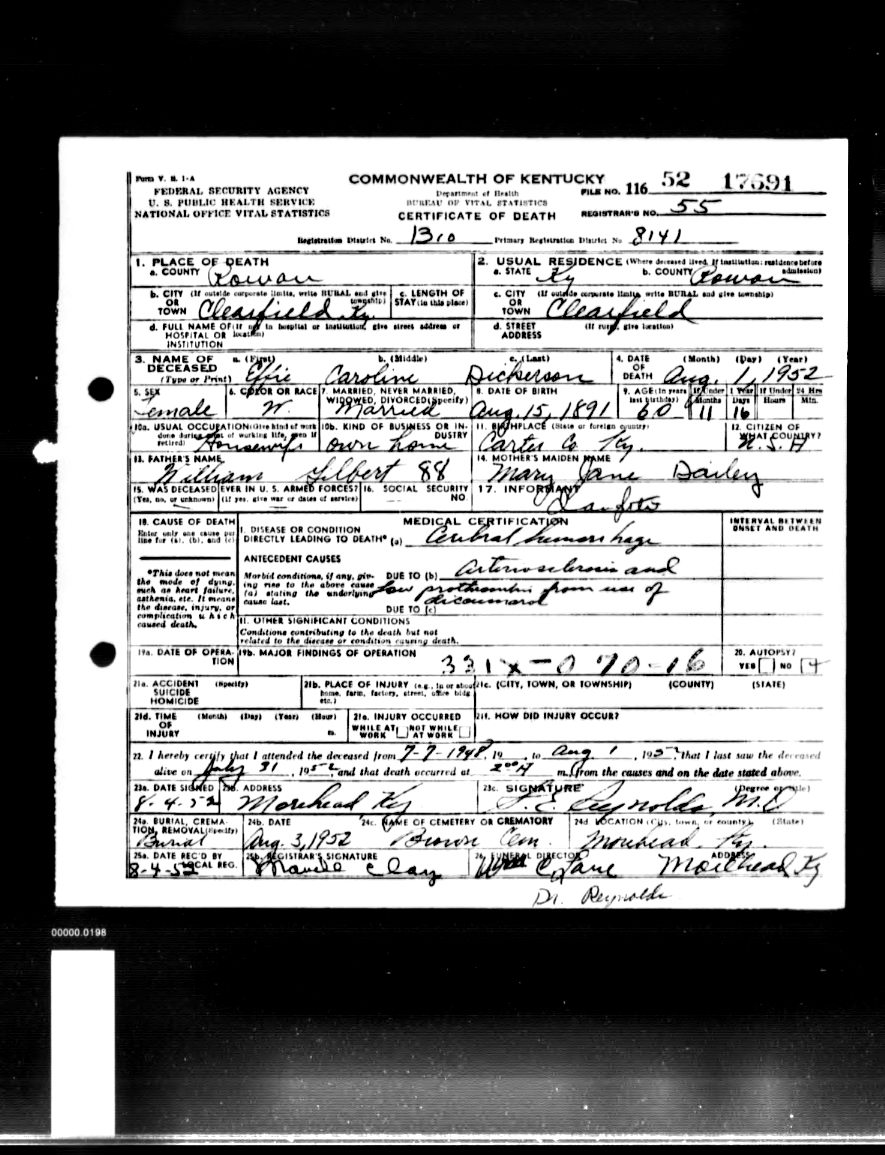 Form V. S. 1-A
FEDERAL SECURITY AGENCY
U. S. PUBLIC HEALTH SERVICE
NATIONAL OFFICE VITAL STATISTICS
COMMONWEALTH OF KENTUCKY
Department of Health
BUREAU OF VITAL STATISTICS
CERTIFICATE OF DEATH
FILE NO. 116 52 17691
REGISTRAR'S NO. 55
Registration District No. 1310 Primary Registration District No 8141
1. PLACE OF DEATH
a. COUNTY Rowan
2. USUAL RESIDENCE (Where deceased lived. If institution: residence before admission)
a. STATE Ky b. COUNTY Rowan
b. CITY (If outside corporate limits, write RURAL and give township)
OR TOWN Clearfield Ky.
c. LENGTH OF STAY (in this place)
c. CITY (If outside corporate limits, write RURAL and give township)
OR TOWN Clearfield
d. FULL NAME OF (If not in hospital or institution, give street address or location)
HOSPITAL OR INSTITUTION
d. STREET ADDRESS (If rural, give location)
3. NAME OF DECEASED (Type or Print)
a. (First) Effie
b. (Middle) Caroline
c. (Last) Dickerson
4. DATE OF DEATH (Month) (Day) (Year)
Aug. 1, 1952
5. SEX
Female
6. COLOR OR RACE
W.
7. MARRIED, NEVER MARRIED, WIDOWED, DIVORCED (Specify)
Married
8. DATE OF BIRTH
Aug. 15, 1891
9. AGE (In years last birthday) 60
If Under 1 Year Months 11 Days 16
If Under 24 Hrs Hours Min.
10a. USUAL OCCUPATION (Give kind of work done during most of working life, even if retired)
Housewife
10b. KIND OF BUSINESS OR INDUSTRY
own home
11. BIRTHPLACE (State or foreign country)
Carter Co. Ky.
12. CITIZEN OF WHAT COUNTRY?
U. S. A
13. FATHER'S NAME
William Gilbert 88
14. MOTHER'S MAIDEN NAME
Mary Jane Dailey
15. WAS DECEASED EVER IN U. S. ARMED FORCES?
(Yes, no, or unknown) (If yes, give war or dates of service)
16. SOCIAL SECURITY NO.
17. INFORMANT
18. CAUSE OF DEATH
Enter only one cause per line for (a), (b), and (c)
MEDICAL CERTIFICATION
INTERVAL BETWEEN ONSET AND DEATH
I. DISEASE OR CONDITION
DIRECTLY LEADING TO DEATH* (a) Cerebral hemorrhage
*This does not mean the mode of dying, such as heart failure, asthenia, etc. It means the disease, injury, or complication which caused death.
ANTECEDENT CAUSES
Morbid conditions, if any, giving rise to the above cause (a) stating the underlying cause last.
DUE TO (b) Arteriosclerosis and
low prothrombin from use of
dicoumarol
DUE TO (c)
II. OTHER SIGNIFICANT CONDITIONS
Conditions contributing to the death but not
related to the disease or condition causing death.
19a. DATE OF OPERATION
19b. MAJOR FINDINGS OF OPERATION
331X-070-16
20. AUTOPSY?
YES NO
21a. ACCIDENT (Specify)
SUICIDE
HOMICIDE
21b. PLACE OF INJURY (e.g., in or about home, farm, factory, street, office bldg., etc.)
21c. (CITY, TOWN, OR TOWNSHIP) (COUNTY) (STATE)
21d. TIME OF INJURY (Month) (Day) (Year) (Hour) m.
21e. INJURY OCCURRED
WHILE AT WORK NOT WHILE AT WORK
21f. HOW DID INJURY OCCUR?
22. I hereby certify that I attended the deceased from 7-7-1948, 19 , to Aug 1, 1952 that I last saw the deceased
alive on July 31, 1952, and that death occurred at 2:00 A m., from the causes and on the date stated above.
23a. DATE SIGNED
8-4-52
23b. ADDRESS
Morehead Ky
23c. SIGNATURE (Degree or title)
Reynolds, M.D
24a. BURIAL, CREMATION, REMOVAL (Specify)
Burial
24b. DATE
Aug 3, 1952
24c. NAME OF CEMETERY OR CREMATORY
Brown Cem.
24d. LOCATION (City, town, or county) (State)
Morehead, Ky.
25a. DATE REC'D BY LOCAL REG.
8-4-52
25b. REGISTRAR'S SIGNATURE
Clay
26. FUNERAL DIRECTOR
Lane
ADDRESS
Morehead Ky
Dr. Reynolds
00000.0198